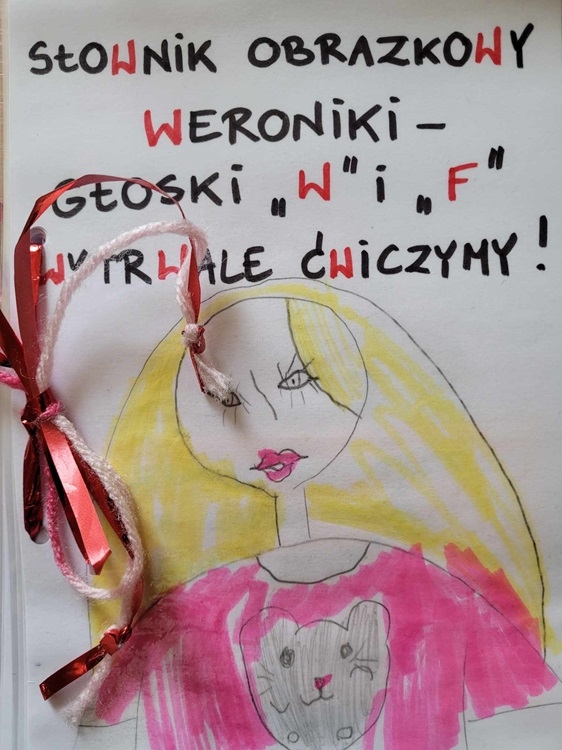 SŁOWNIK OBRAZKOWY
WERONIKI –
GŁOSKI „W" i „F"
WYTRWALE ĆWICZYMY!